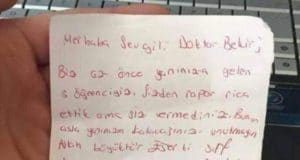 Merhaba Sevgili Doktor Bekir,
Biz az önce yanınıza gelen
5 öğrenciyiz. Sizden rapor rica
ettik ama siz vermediniz. Bunun
asla yanınıza kalacağını unutmayın
Allah büyüktür